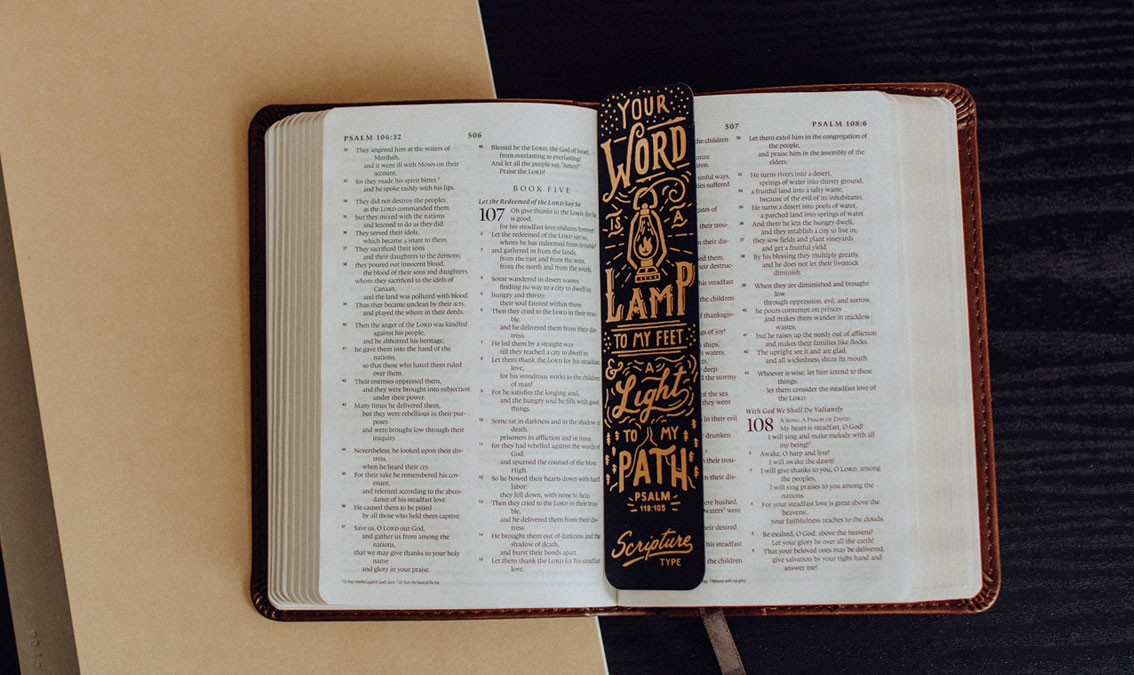 PSALM 106:32
506
32 They angered him at the waters of
Meribah,
and it went ill with Moses on their
account,
33 for they made his spirit bitter,
and he spoke rashly with his lips.
34 They did not destroy the peoples,
as the LORD commanded them,
35 but they mixed with the nations
and learned to do as they did.
36 They served their idols,
which became a snare to them.
37 They sacrificed their sons
and their daughters to the demons;
38 they poured out innocent blood,
the blood of their sons and daughters,
whom they sacrificed to the idols of
Canaan,
and the land was polluted with blood.
39 Thus they became unclean by their acts,
and played the whore in their deeds.
40 Then the anger of the LORD was kindled
against his people,
and he abhorred his heritage;
41 he gave them into the hand of the
nations,
so that those who hated them ruled
over them.
42 Their enemies oppressed them,
and they were brought into subjection
under their power.
43 Many times he delivered them,
but they were rebellious in their pur-
poses
and were brought low through their
iniquity.
44 Nevertheless, he looked upon their dis-
tress,
when he heard their cry.
45 For their sake he remembered his cov-
enant,
and relented according to the abun-
dance of his steadfast love.
46 He caused them to be pitied
by all those who held them captive.
47 Save us, O LORD our God,
and gather us from among the
nations,
that we may give thanks to your holy
name
and glory in your praise.
48 Blessed be the LORD, the God of Israel,
from everlasting to everlasting!
And let all the people say, "Amen!"
Praise the LORD!
BOOK FIVE
Let the Redeemed of the LORD Say So
107 Oh give thanks to the LORD, for he
is good,
for his steadfast love endures forever!
2 Let the redeemed of the LORD say so,
whom he has redeemed from trouble
3 and gathered in from the lands,
from the east and from the west,
from the north and from the south.
4 Some wandered in desert wastes,
finding no way to a city to dwell in;
5 hungry and thirsty,
their soul fainted within them.
6 Then they cried to the LORD in their trou-
ble,
and he delivered them from their dis-
tress.
7 He led them by a straight way
till they reached a city to dwell in.
8 Let them thank the LORD for his steadfast
love,
for his wondrous works to the children
of man!
9 For he satisfies the longing soul,
and the hungry soul he fills with good
things.
10 Some sat in darkness and in the shadow of
death,
prisoners in affliction and in irons,
11 for they had rebelled against the words of
God,
and spurned the counsel of the Most
High.
12 So he bowed their hearts down with hard
labor;
they fell down, with none to help.
13 Then they cried to the LORD in their trou-
ble,
and he delivered them from their dis-
tress.
14 He brought them out of darkness and the
shadow of death,
and burst their bonds apart.
15 Let them thank the LORD for his steadfast
love,
YOUR
WORD
IS A
LAMP
TO MY FEET
& A
Light
TO MY
PATH
PSALM
119:105
Scripture
TYPE
507
PSALM 108:6
the children
sinful ways,
suffered
gates of
their trou-
their dis-
them,
their destruc-
his steadfast
the children
of thanksgiv-
songs of joy!
ships,
waters;
deep.
the stormy
of the sea.
they went
in their evil
drunken
their trou-
their dis-
were hushed.
waters were
their desired
his steadfast
the children
32 Let them extol him in the congregation of
the people,
and praise him in the assembly of the
elders.
33 He turns rivers into a desert,
springs of water into thirsty ground,
34 a fruitful land into a salty waste,
because of the evil of its inhabitants.
35 He turns a desert into pools of water,
a parched land into springs of water.
36 And there he lets the hungry dwell,
and they establish a city to live in;
37 they sow fields and plant vineyards
and get a fruitful yield.
38 By his blessing they multiply greatly,
and he does not let their livestock
diminish.
39 When they are diminished and brought
low
through oppression, evil, and sorrow,
40 he pours contempt on princes
and makes them wander in trackless
wastes;
41 but he raises up the needy out of affliction
and makes their families like flocks.
42 The upright see it and are glad,
and all wickedness shuts its mouth.
43 Whoever is wise, let him attend to these
things;
let them consider the steadfast love of
the LORD.
With God We Shall Do Valiantly
108 A SONG. A PSALM OF DAVID.
My heart is steadfast, O God!
I will sing and make melody with all
my being!
2 Awake, O harp and lyre!
I will awake the dawn!
3 I will give thanks to you, O LORD, among
the peoples;
I will sing praises to you among the
nations.
4 For your steadfast love is great above the
heavens;
your faithfulness reaches to the clouds.
5 Be exalted, O God, above the heavens!
Let your glory be over all the earth!
6 That your beloved ones may be delivered,
give salvation by your right hand and
answer me!